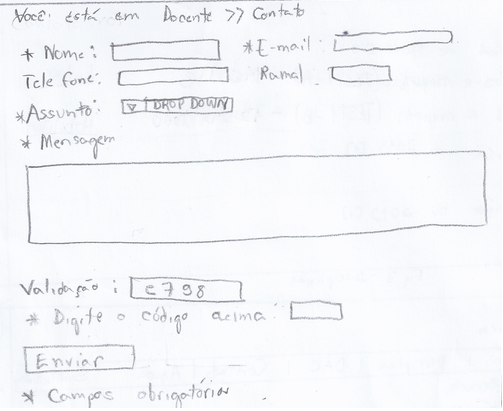 Você está em Docente >> Contato
* Nome: *E-mail:
Telefone: Ramal:
*Assunto: DROP DOWN
* Mensagem
Validação: c798
* Digite o código acima:
Enviar
* Campos obrigatórios